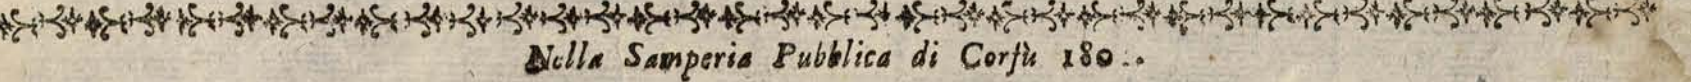 Nella Samperia Pubblica di Corfù 180